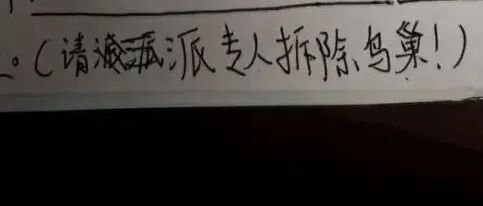 。(请派专人拆除鸟巢!)